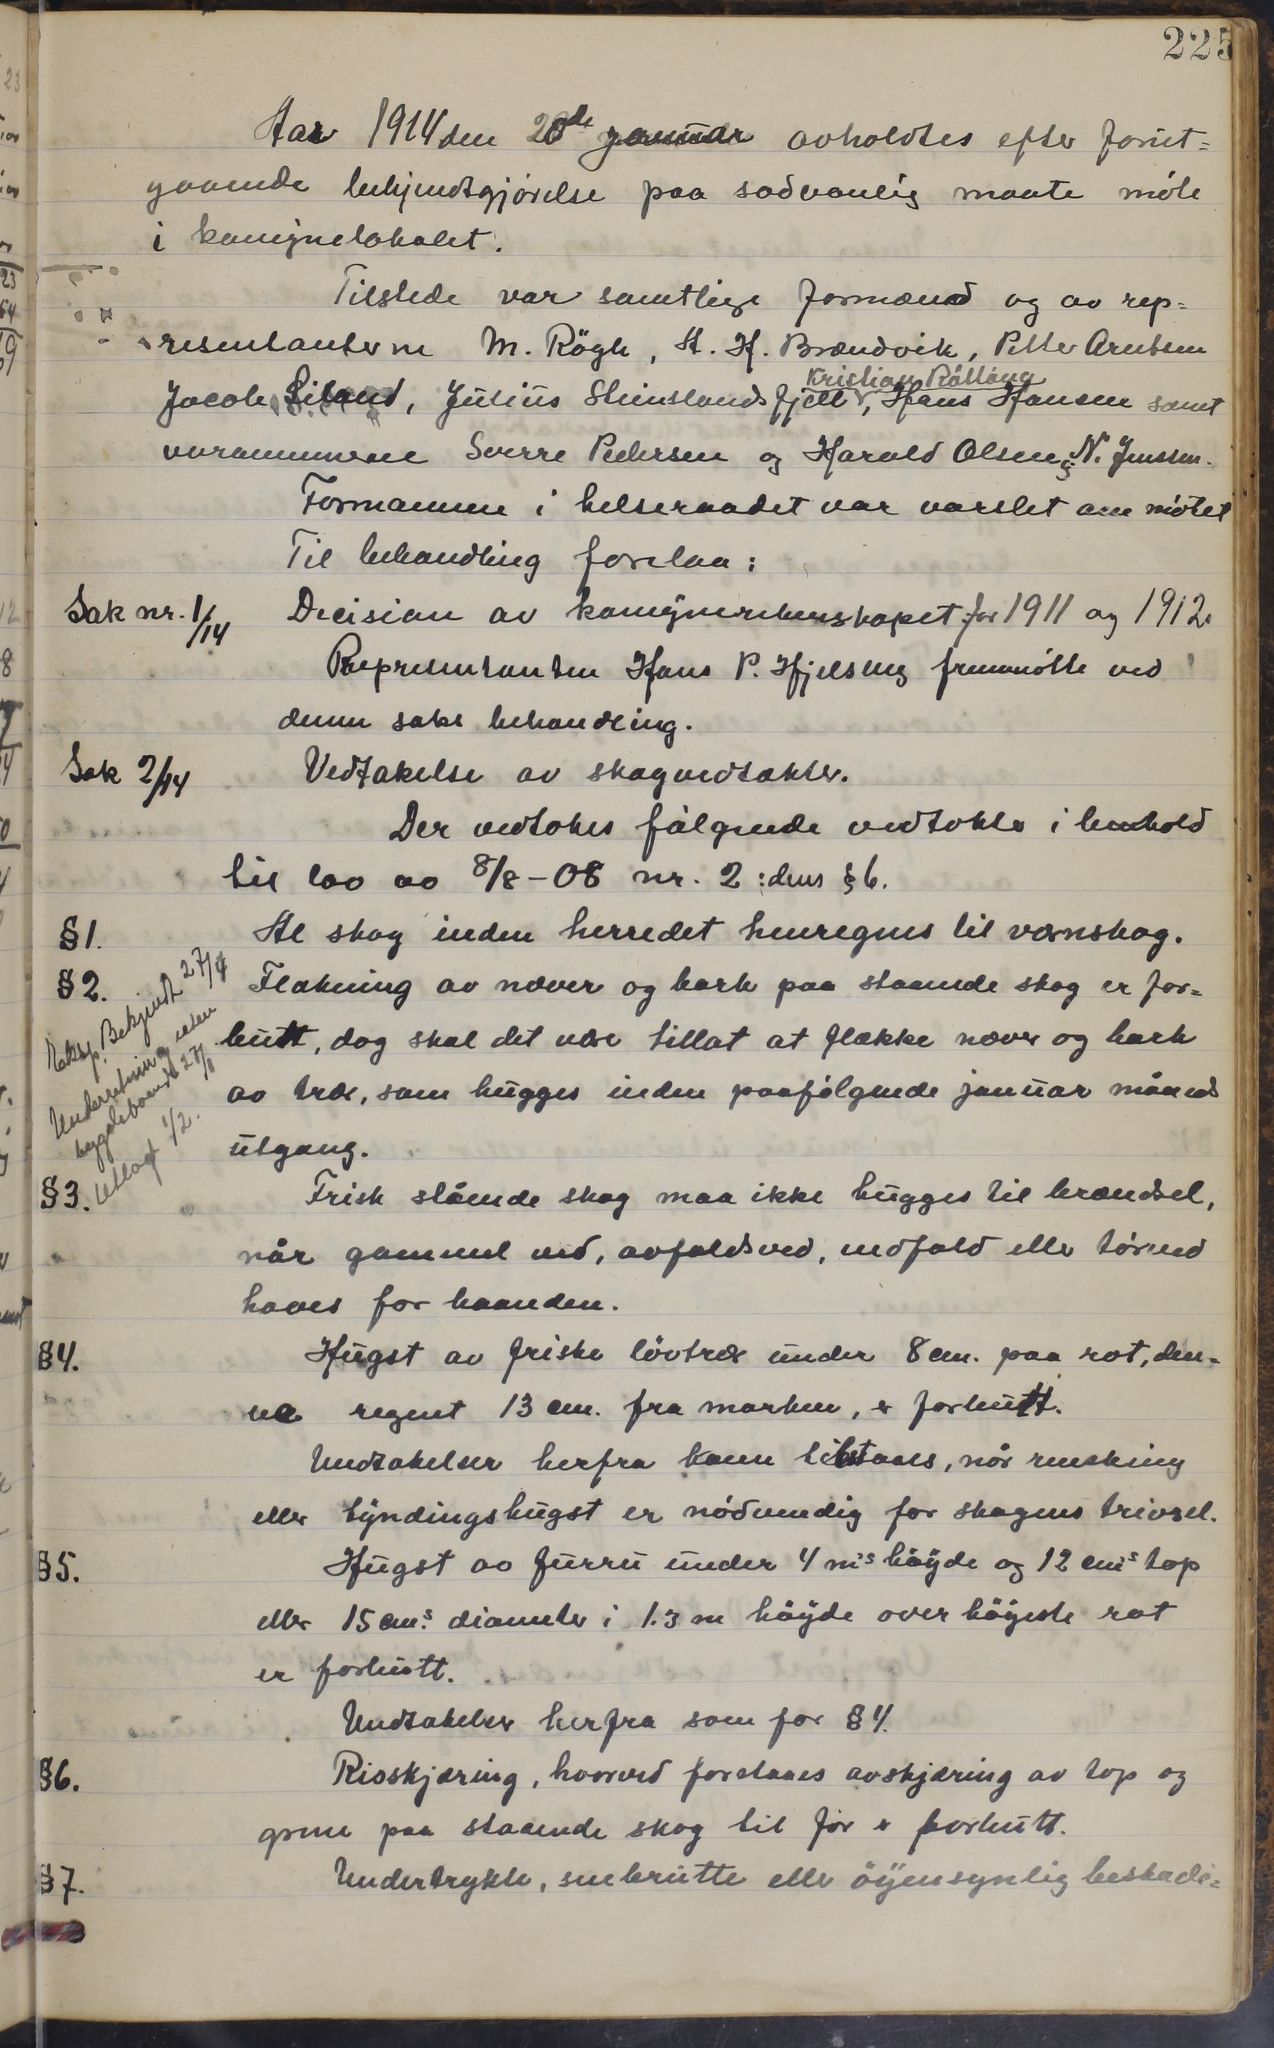 225
Aar 1914 den 20de januar avholdtes efter forut=
gaaende bekjendtgjörelse paa sedvanlig maate möte
i kommunelokalet.
Tilstede var samtlige formænd og av rep=
resentanterne M. Rögh, A. H. Brændvik, Petter Arntsen
Kristian Råttåug
Jacob Liland, Julius Steinslandsfjell, Hans Hansen samt
varamænnene Sverre Pedersen og Harald Olsen og N. Jenssen.
Formannen i helseraadet var varslet om mötet
Til behandling forelaa:
Sak nr. 1/14 Decision av kommuneregnskapet for 1911 og 1912.
Representanten Hans P. Hjelseng fremmötte ved
denne saks behandling.
Sak 2/14 Vedtakelse av skogvedtækter.
Der vedtokes fölgende vedtekter i henhold
til lov av 8/8-08 nr. 2: dens § 6.
§1. Al skog inden herredet henregnes til vernskog.
§2. Flækning av never og bark paa staaende skog er for=
butt, dog skal det være tillat at flække never og bark
av trær, som hugges inden paafölgende januar måneds
utgang.
Eksp. Bekjendt 27/4
Underretning uten
bygdeboende 27/8
Utlagt 1/2.
§3. Frisk stående skog maa ikke hugges til brændsel,
når gammel ved, avfaldsved, nedfald eller törved
haves for haanden.
§4. Hugst av friske lövtrær under 8 cm. paa rot, den-
ne regnet 13 cm. fra marken, er forbutt.
Undtakelser herfra kann tilstaaes, når renskning
eller tyndingshugst er nödvendig for skogens trivsel.
§5. Hugst av furru under 4 m's höyde og 12 cm's top
eller 15 cm's diameter i 1.3 m höyde over höyeste rot
er forbutt.
Undtakelser herfra som for §4.
§6. Risskjæring, hvorved forstaaes avskjæring av top og
grene paa staaende skog til for er forbutt.
§7. Undertrykte, snebrutte eller öyensynlig beskadi=